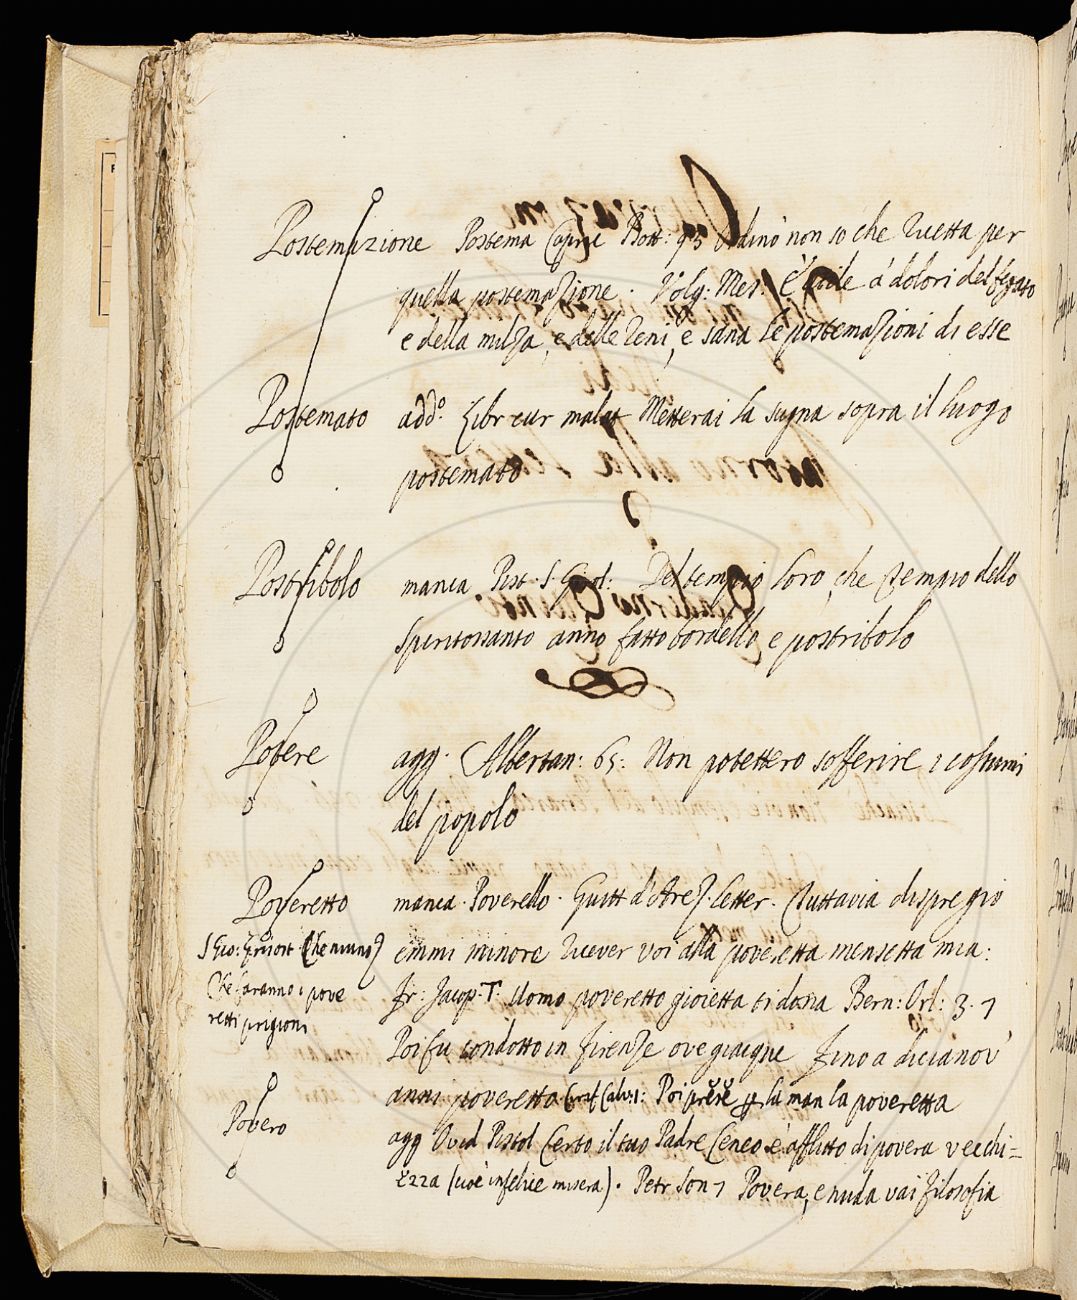 Postemazione Postema Capre Bott: 95 Ordinò non so che ricetta per
quella postemazione. Volg: Mes: È utile a' dolori del fegato
e della milza, e delle reni, e sana le postemazioni di esse
Postemato add.º Libr cur malat Metterai la sugna sopra il luogo
postemato
Postribolo manca Pist. S. Girol: Del tempio loro, che tempio dello
Spiritossanto anno fatto bordello e postribolo
Potere agg. Albertan: 65: Non potettero sofferire i costumi
del popolo
Poveretto manca. Poverello. Guitt d'Arez. letter. Tuttavia dispregio
emmi minore ricever voi alla poveretta mensetta mia:
Fr: Jacop. T: Uomo poveretto gioietta ti dona Bern: Orl: 3. 7
Poi fu condotto in Firenze ove giacque Fino a dicianov'
anni poveretta. Poi prese la man la poveretta
S Gio: Grisost Che niuno
Che faranno i pove
retti prigioni
Povero agg Ovid Pistol Certo il tuo Padre Ceneo è afflitto di povera vecchi=
ezza (cioè infelice misera). Petr Son 7 Povera, e nuda vai filosofia